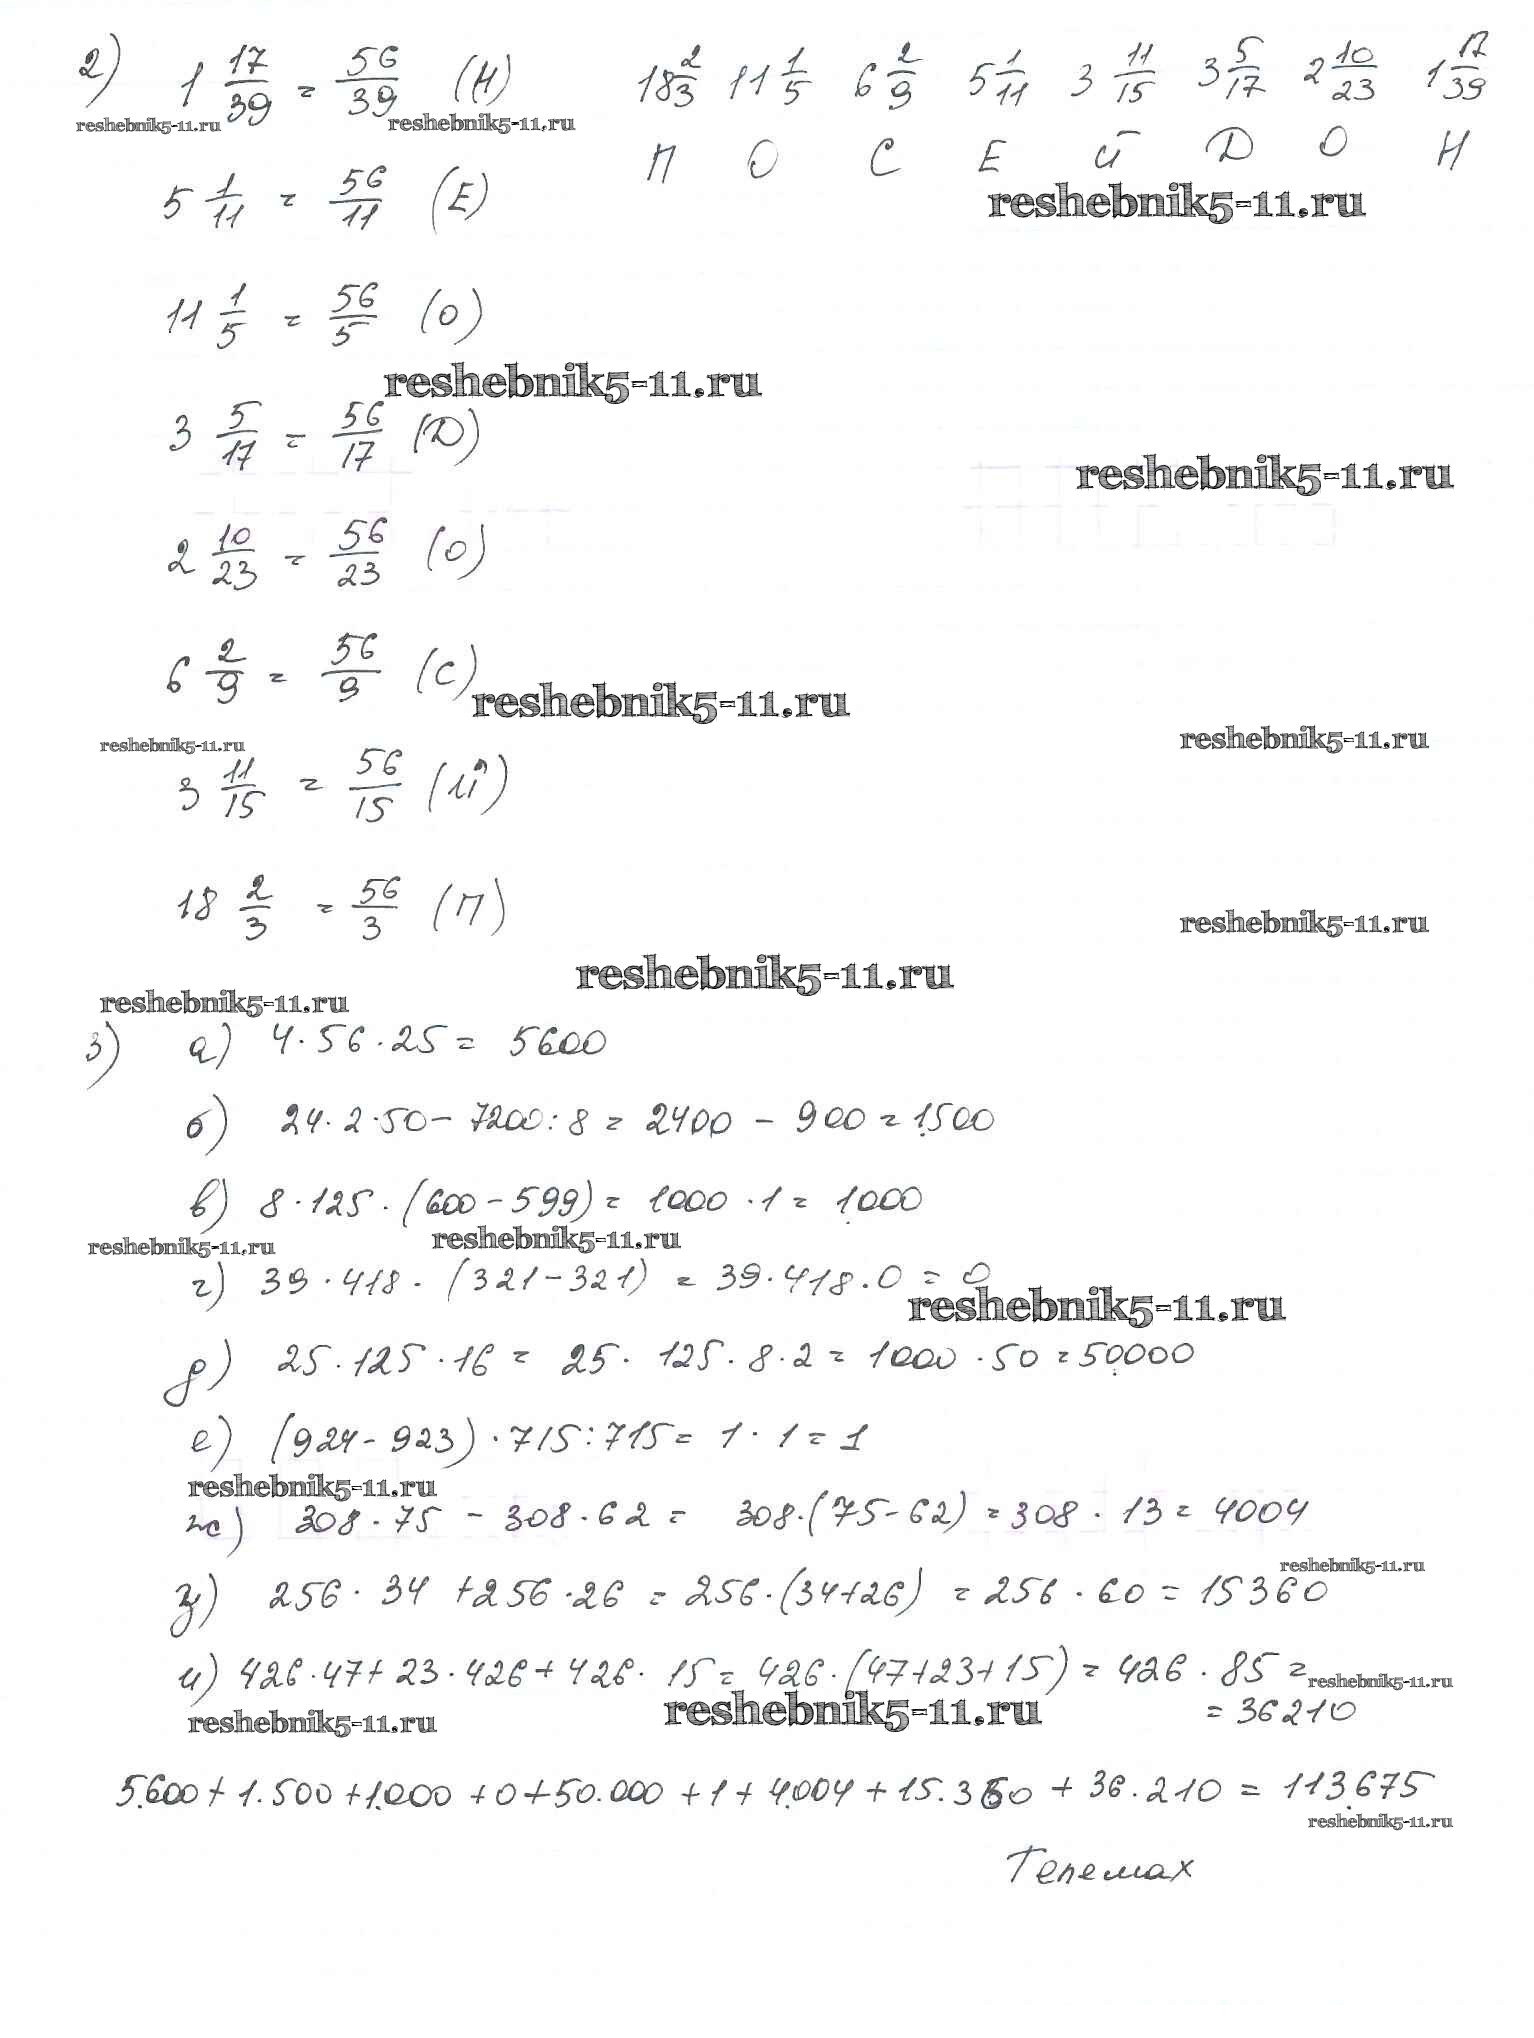 2) 1 17/39 = 56/39 (Н) 18 2/3 11 1/5 6 2/9 5 1/11 3 11/15 3 5/17 2 10/23 1 17/39
reshebnik5-11.ru reshebnik5-11.ru
П О С Е Й Д О Н
5 1/11 = 56/11 (Е)
reshebnik5-11.ru
11 1/5 = 56/5 (О)
reshebnik5-11.ru
3 5/17 = 56/17 (Д)
reshebnik5-11.ru
2 10/23 = 56/23 (О)
6 2/9 = 56/9 (С)
reshebnik5-11.ru
reshebnik5-11.ru reshebnik5-11.ru
3 11/15 = 56/15 (Й)
18 2/3 = 56/3 (П)
reshebnik5-11.ru
reshebnik5-11.ru
reshebnik5-11.ru
3) а) 4·56·25 = 5600
б) 24·2·50 - 7200:8 = 2400 - 900 = 1.500
в) 8·125·(600-599) = 1000·1 = 1.000
reshebnik5-11.ru reshebnik5-11.ru
г) 39·418·(321-321) = 39·418·0 = 0
reshebnik5-11.ru
д) 25·125·16 = 25·125·8·2 = 1000·50 = 50.000
е) (924-923)·715:715 = 1·1 = 1
reshebnik5-11.ru
ж) 308·75 - 308·62 = 308·(75-62) = 308·13 = 4004
reshebnik5-11.ru
з) 256·34 + 256·26 = 256·(34+26) = 256·60 = 15360
и) 426·47 + 23·426 + 426·15 = 426·(47+23+15) = 426·85 =
reshebnik5-11.ru
reshebnik5-11.ru reshebnik5-11.ru
= 36210
5.600 + 1.500 + 1.000 + 0 + 50.000 + 1 + 4.004 + 15.360 + 36.210 = 113.675
reshebnik5-11.ru
Телемах